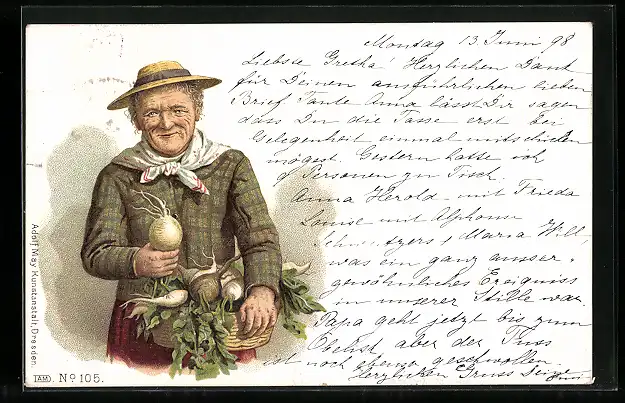 Montag 13. Juni 98
Liebste Gretha! Herzlichen Dank
für Deinen ausführlichen lieben
Brief Tante Anna lässt Dir sagen
dass Du die Tasse erst bei
Gelegenheit einmal mitschicken
mögest. Gestern hatte ich
9 Personen zu Tisch.
Anna Herold mit Frieda
Louise mit Alphonse
Maria Will,
was ein ganz ausser-
gewöhnliches Ereigniss
in unserer Stille war.
Papa geht jetzt bis zum
aber der Fuss
ist noch ebenso geschwollen
Herzlichen Gruss Deine
Adolf May, Kunstanstalt, Dresden.
AM. No 105.